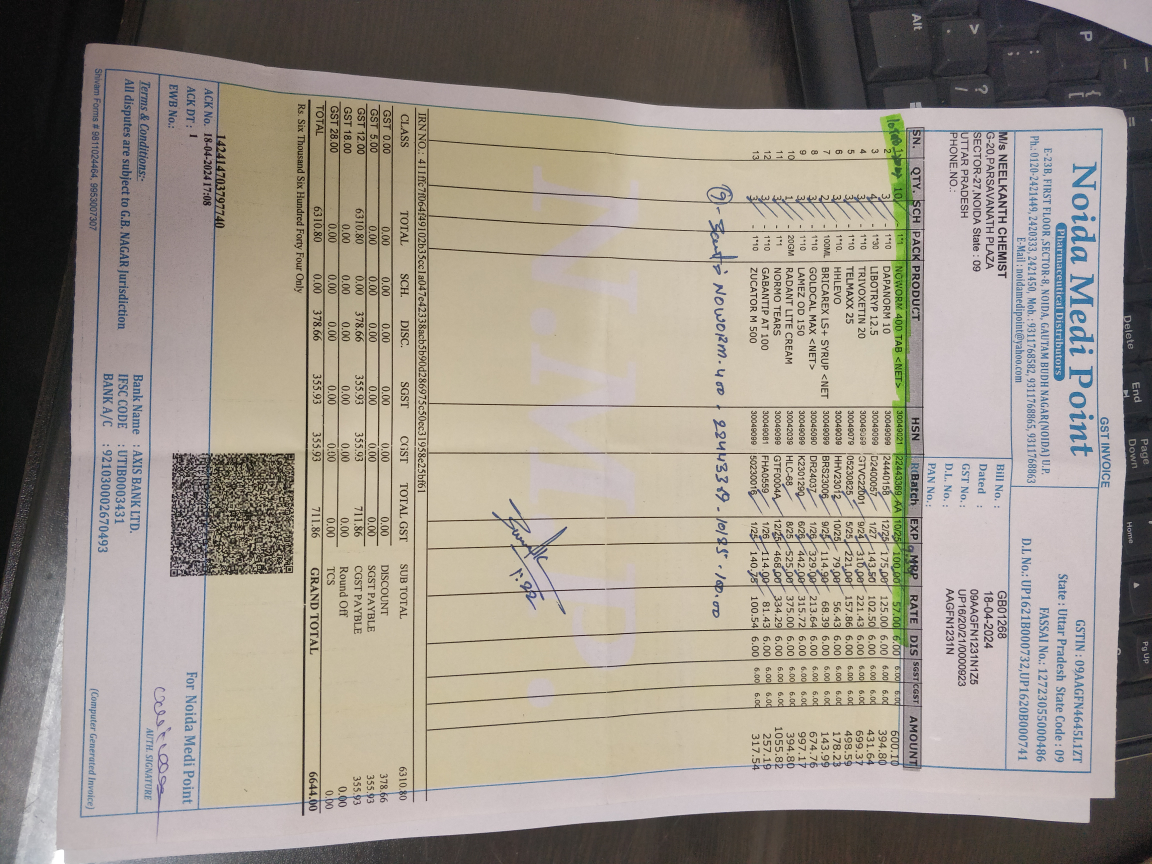 GST INVOICE
Noida Medi Point
Pharmaceutical Distributors
E-23B, FIRST FLOOR ,SECTOR-8, NOIDA, GAUTAM BUDH NAGAR(NOIDA) U.P.
Ph: 0120-2421449, 2420333, 2421450, Mob.: 9311768582, 9311768865, 9311768863
E-Mail : noidamedipoint@yahoo.com
GSTIN : 09AAGFN4645L1ZT
State : Uttar Pradesh State Code : 09
FASSAI No.: 12723055000486
D.I. No.: UP1621B000732,UP1620B000741
M/s NEELKANTH CHEMIST
G-20,PARSAVANATH PLAZA
SECTOR-27,NOIDA State : 09
UTTAR PRADESH
PHONE.NO.:
Bill No. : GB01268
Dated : 18-04-2024
GST No.: 09AAGFN1231N1Z5
D.L. No.: UP16/20/21/0000923
PAN No.: AAGFN1231N
SN. QTY. SCH PACK PRODUCT HSN Batch EXP MRP RATE DIS SGST CGST AMOUNT
1 10 - 1*1 NOWORM 400 TAB <NET> 30049021 22443369 AA 10/25 100.00 57.00 6.00 6.00 6.00 600.10
2 3 - 1*10 DAPANORM 10 30049099 24440158 12/25 175.00 125.00 6.00 6.00 6.00 394.80
3 4 - 1*30 LIBOTRYP 12.5 30049099 D2400057 1/27 143.50 102.50 6.00 6.00 6.00 431.64
4 3 - 1*10 TRIVOXETIN 20 30049099 GTVC22001 9/24 310.00 221.43 6.00 6.00 6.00 699.37
5 3 - 1*10 TELMAXX 25 30049079 05230825 5/25 221.00 157.86 6.00 6.00 6.00 498.59
6 3 - 1*10 HHLEVO 30049039 HHV23012 10/25 79.00 56.43 6.00 6.00 6.00 178.23
7 2 - 100ML BRICAREX LS+ SYRUP <NET 30049099 BRS23006 9/25 114.90 68.39 6.00 6.00 6.00 143.99
8 3 - 1*10 GOLDCAL MAX <NET> 30049099 DR24037 1/26 329.00 213.64 6.00 6.00 6.00 674.76
9 3 - 1*10 LAMEZ OD 150 30049099 K2301290 6/26 442.00 315.72 6.00 6.00 6.00 997.17
10 1 - 20GM RADANT LITE CREAM 30042039 HLC-68 8/25 525.00 375.00 6.00 6.00 6.00 394.80
11 3 - 1*1 NORMO TEARS 30049099 GTF0004A 12/25 468.00 334.29 6.00 6.00 6.00 1055.82
12 3 - 1*10 GABANTIP AT 100 30049081 FHA0559 1/26 114.00 81.43 6.00 6.00 6.00 257.19
13 3 - 1*10 ZUCATOR M 500 30049099 50220016 1/25 140.75 100.54 6.00 6.00 6.00 317.54
NOWORM.400 - 22443369 - 10/25 - 100.00
N.M.P.
IRN NO.: 411ffc7f064f49102b35cc1a047e42338acb5b90d286975c50ec31958e25bf61
CLASS TOTAL SCH. DISC. SGST CGST TOTAL GST
GST 0.00 0.00 0.00 0.00 0.00 0.00 0.00
GST 5.00 0.00 0.00 0.00 0.00 0.00 0.00
GST 12.00 6310.80 0.00 378.66 355.93 355.93 711.86
GST 18.00 0.00 0.00 0.00 0.00 0.00 0.00
GST 28.00 0.00 0.00 0.00 0.00 0.00 0.00
TOTAL 6310.80 0.00 378.66 355.93 355.93 711.86
SUB TOTAL 6310.80
DISCOUNT 378.66
SGST PAYBLE 355.93
CGST PAYIBLE 355.93
Round Off 0.00
TCS 0.00
GRAND TOTAL 6644.00
Rs. Six Thousand Six Hundred Forty Four Only
142414703797740
ACK No. 18-04-2024 17:08
ACK DT : 1
EWB No.:
Terms & Conditions:-
All disputes are subject to G.B. NAGAR Jurisdiction
Bank Name : AXIS BANK LTD.
IFSC CODE : UTIB0003431
BANK A/C : 921030002670493
For Noida Medi Point
AUTH. SIGNATURE
(Computer Generated Invoice)
Shivam Forms # 9811024464, 9953007307
Alt
P
Delete
End
Page Down
Home
Pg Up